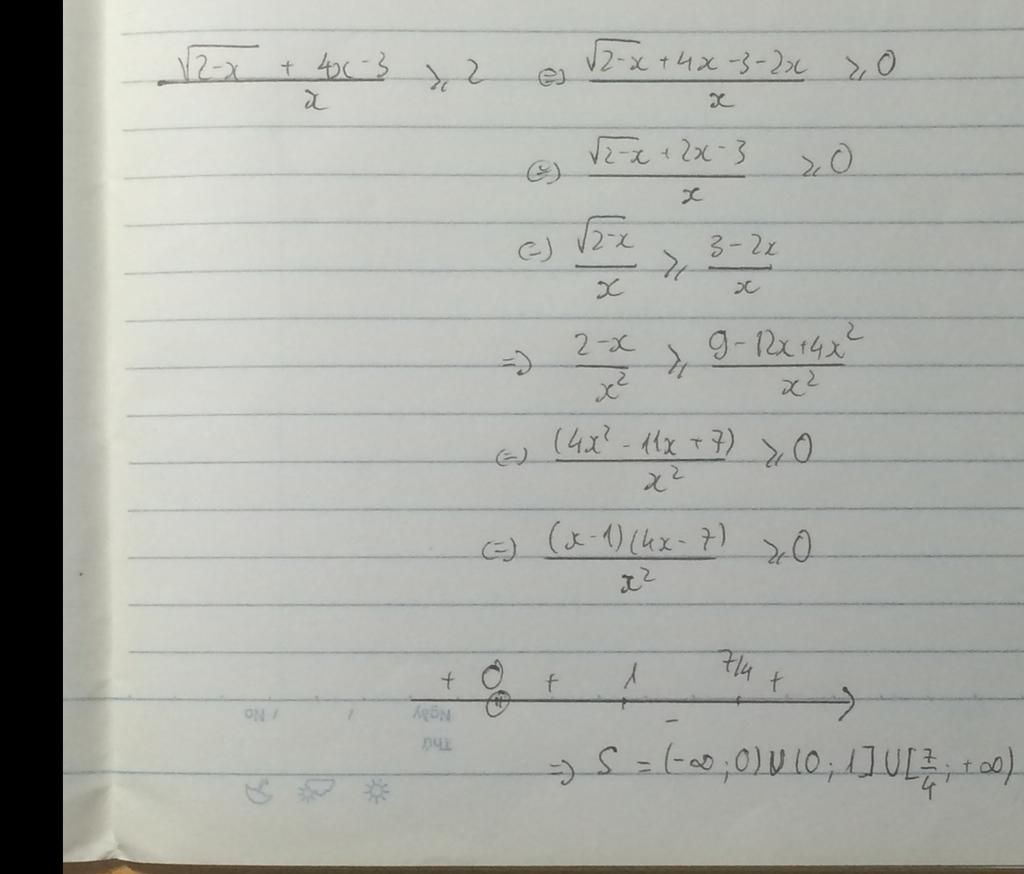 √2-x + 4x-3 / x ⩾ 2 (=) √2-x + 4x-3-2x / x ⩾ 0
(=) √2-x + 2x-3 / x ⩾ 0
(=) √2-x / x ⩾ 3-2x / x
=) 2-x / x² ⩾ 9-12x+4x² / x²
(=) (4x² - 11x + 7) / x² ⩾ 0
(=) (x-1)(4x-7) / x² ⩾ 0
+ 0 + 1 - 7/4 +
Ngày / / No
Thứ
=) S = (-∞;0)U(0;1]U[7/4;+∞)